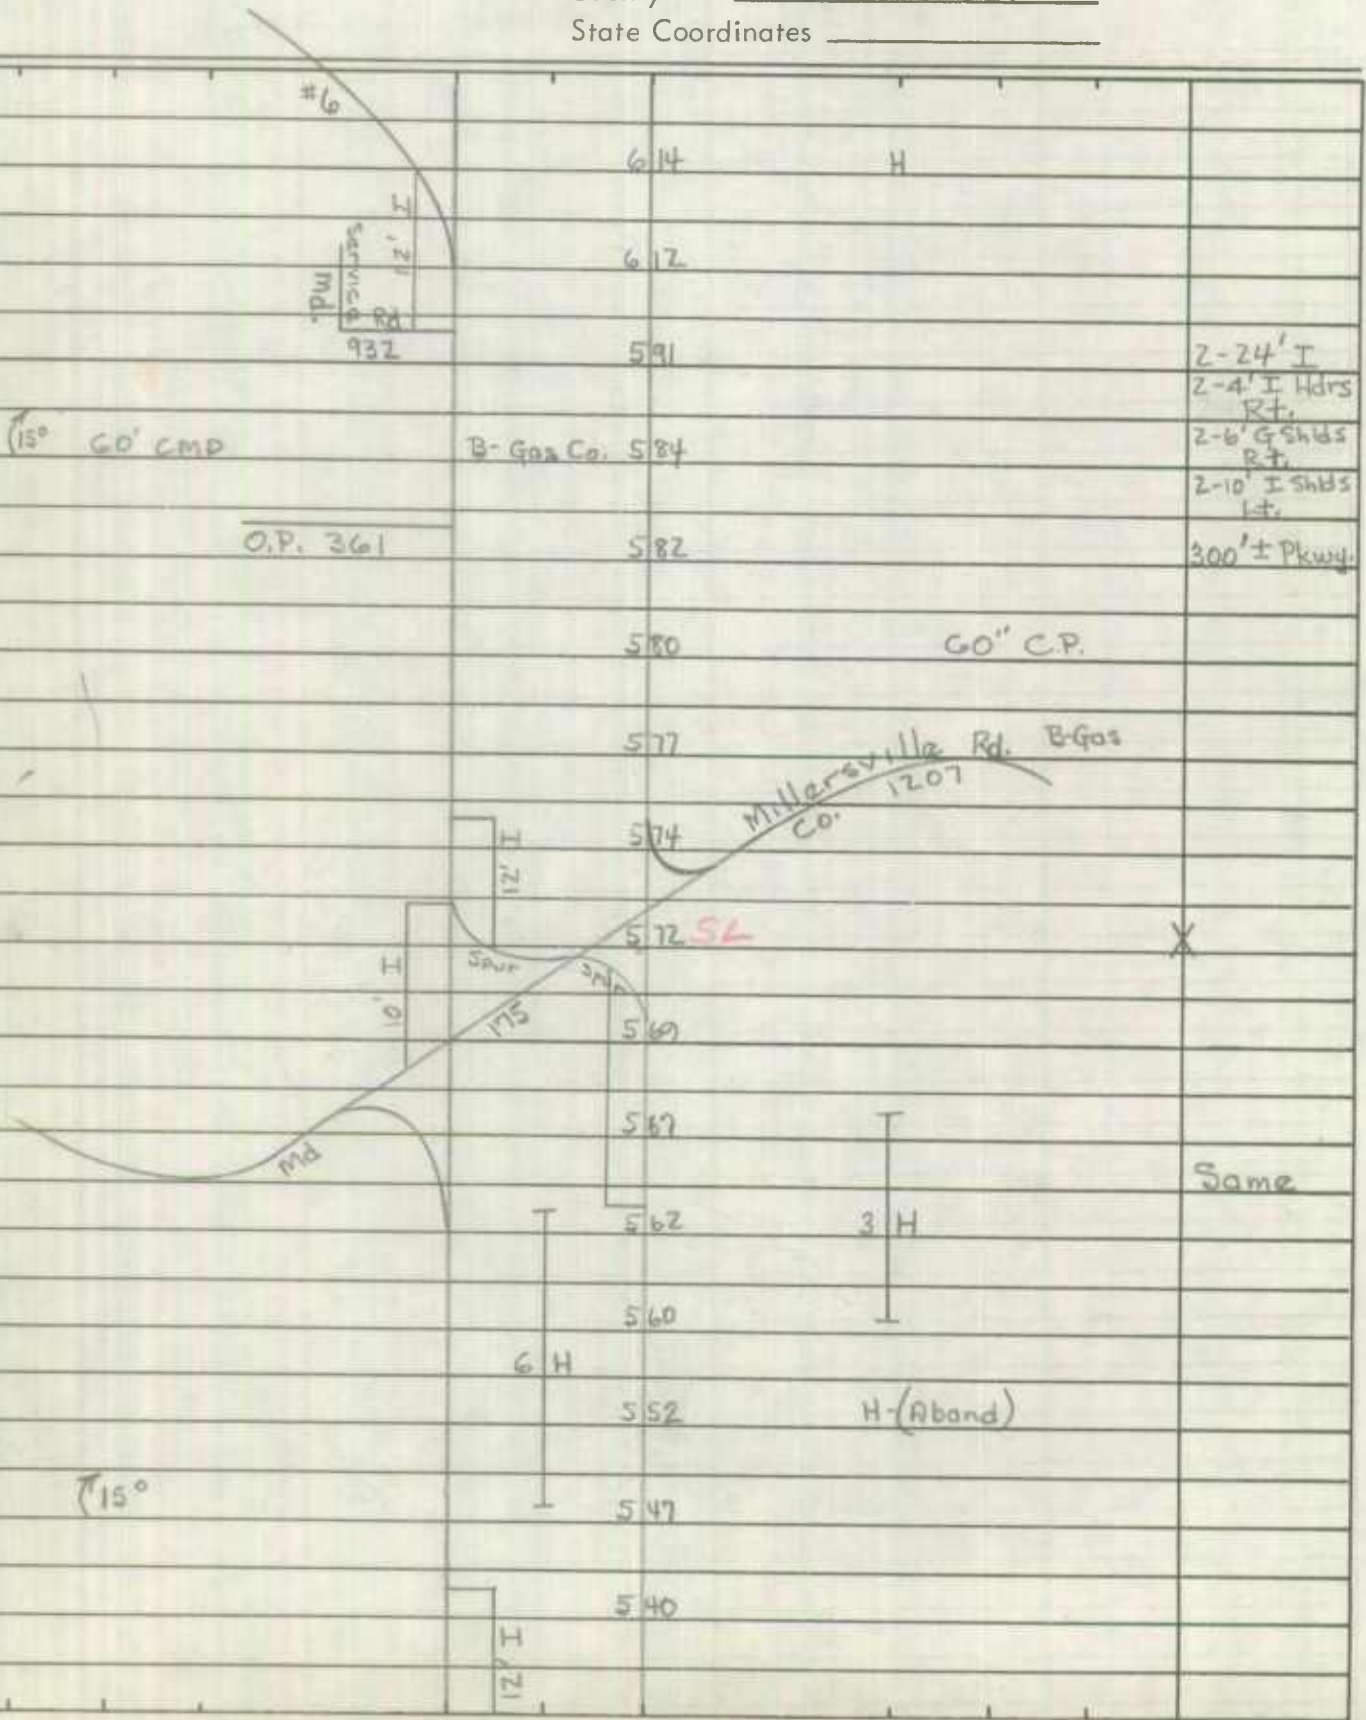 State Coordinates
#6
6 14 H
I 12'
6 12
Service Rd
Md.
932
5 91 2-24' I
2-4' I Hdrs
Rt.
15° 60' CMP B-Gas Co. 5 84 2-6' G Shlds
Rt.
2-10' I Shlds
Lt.
O.P. 361 5 82 300'± Pkwy.
5 80 60" C.P.
5 77 Millersville Rd. B-Gas
1207
Co.
I 12' 5 74
5 72 SL X
Spur Spur
I 10' 175 5 69
5 67
Md Same
5 62 3 H
5 60
6 H
5 52 H-(Aband)
15° 5 47
5 40
12' I